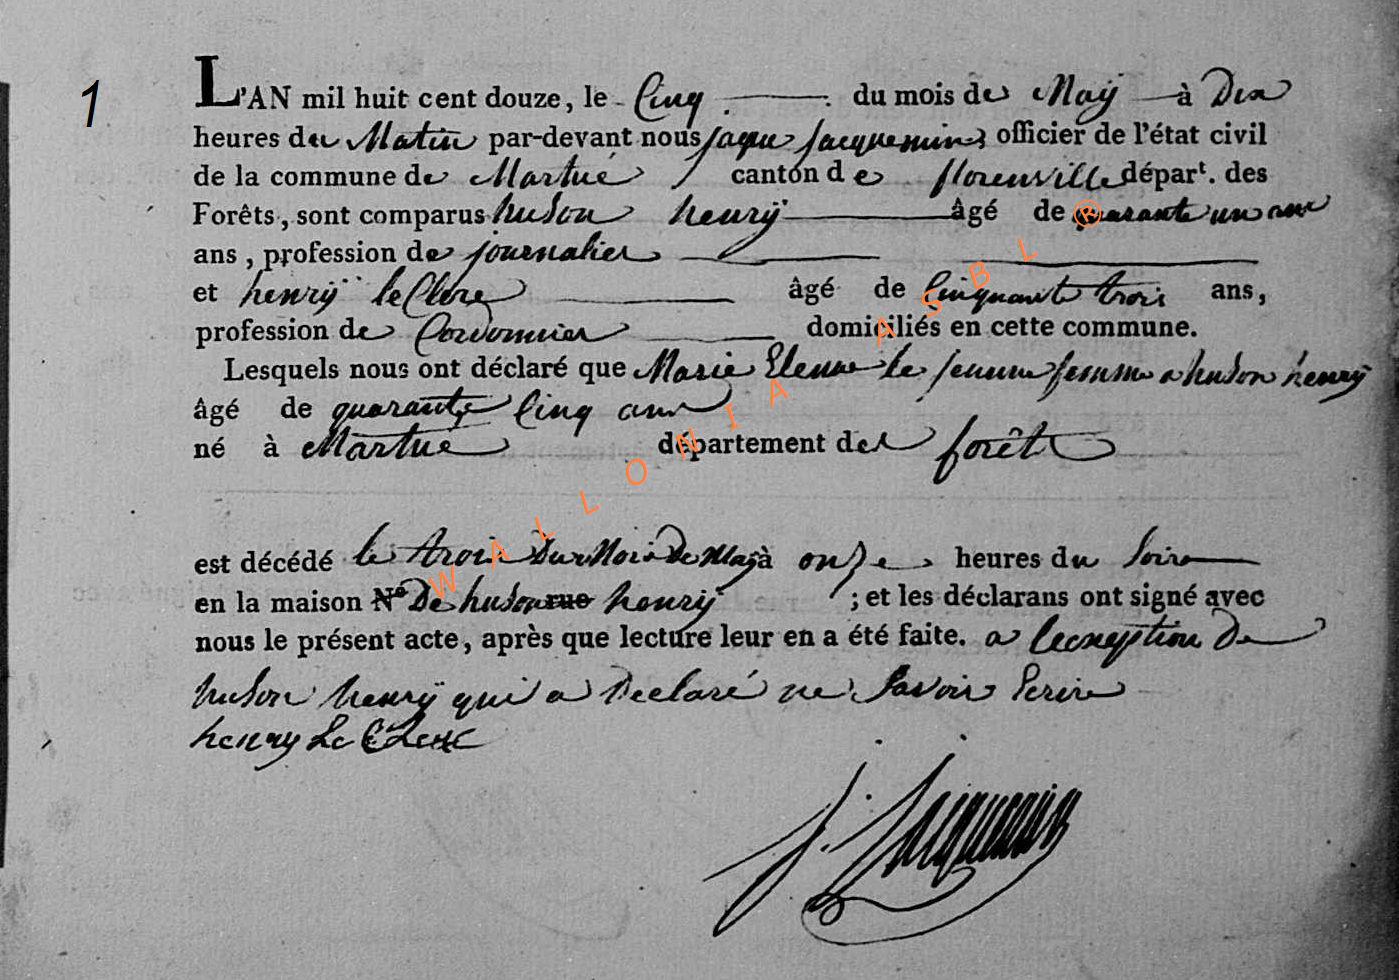 1
L'AN mil huit cent douze, le Cinq du mois de Maÿ à Dix
heures du Matin par-devant nous jaque jacquemin officier de l'état civil
de la commune de Martué canton de florenville départ. des
Forêts, sont comparus huson henrÿ âgé de quarante un ans
ans, profession de journalier
et henrÿ leClere âgé de Cinquante trois ans,
profession de Cordonnier domiciliés en cette commune.
Lesquels nous ont déclaré que Marie Elenne le jeune femme a huson henrÿ
âgé de quarante Cinq ans
né à Martué département des forêts
est décédé le trois Du Mois De Maÿ à onze heures du Soire
en la maison N° De huson rue henrÿ ; et les déclarans ont signé avec
nous le présent acte, après que lecture leur en a été faite. a lexception De
huson henrÿ qui a Declaré ne Savoir Ecrire
henry Le Clere
J. Jacquemin
WALLONIA ASBL ®